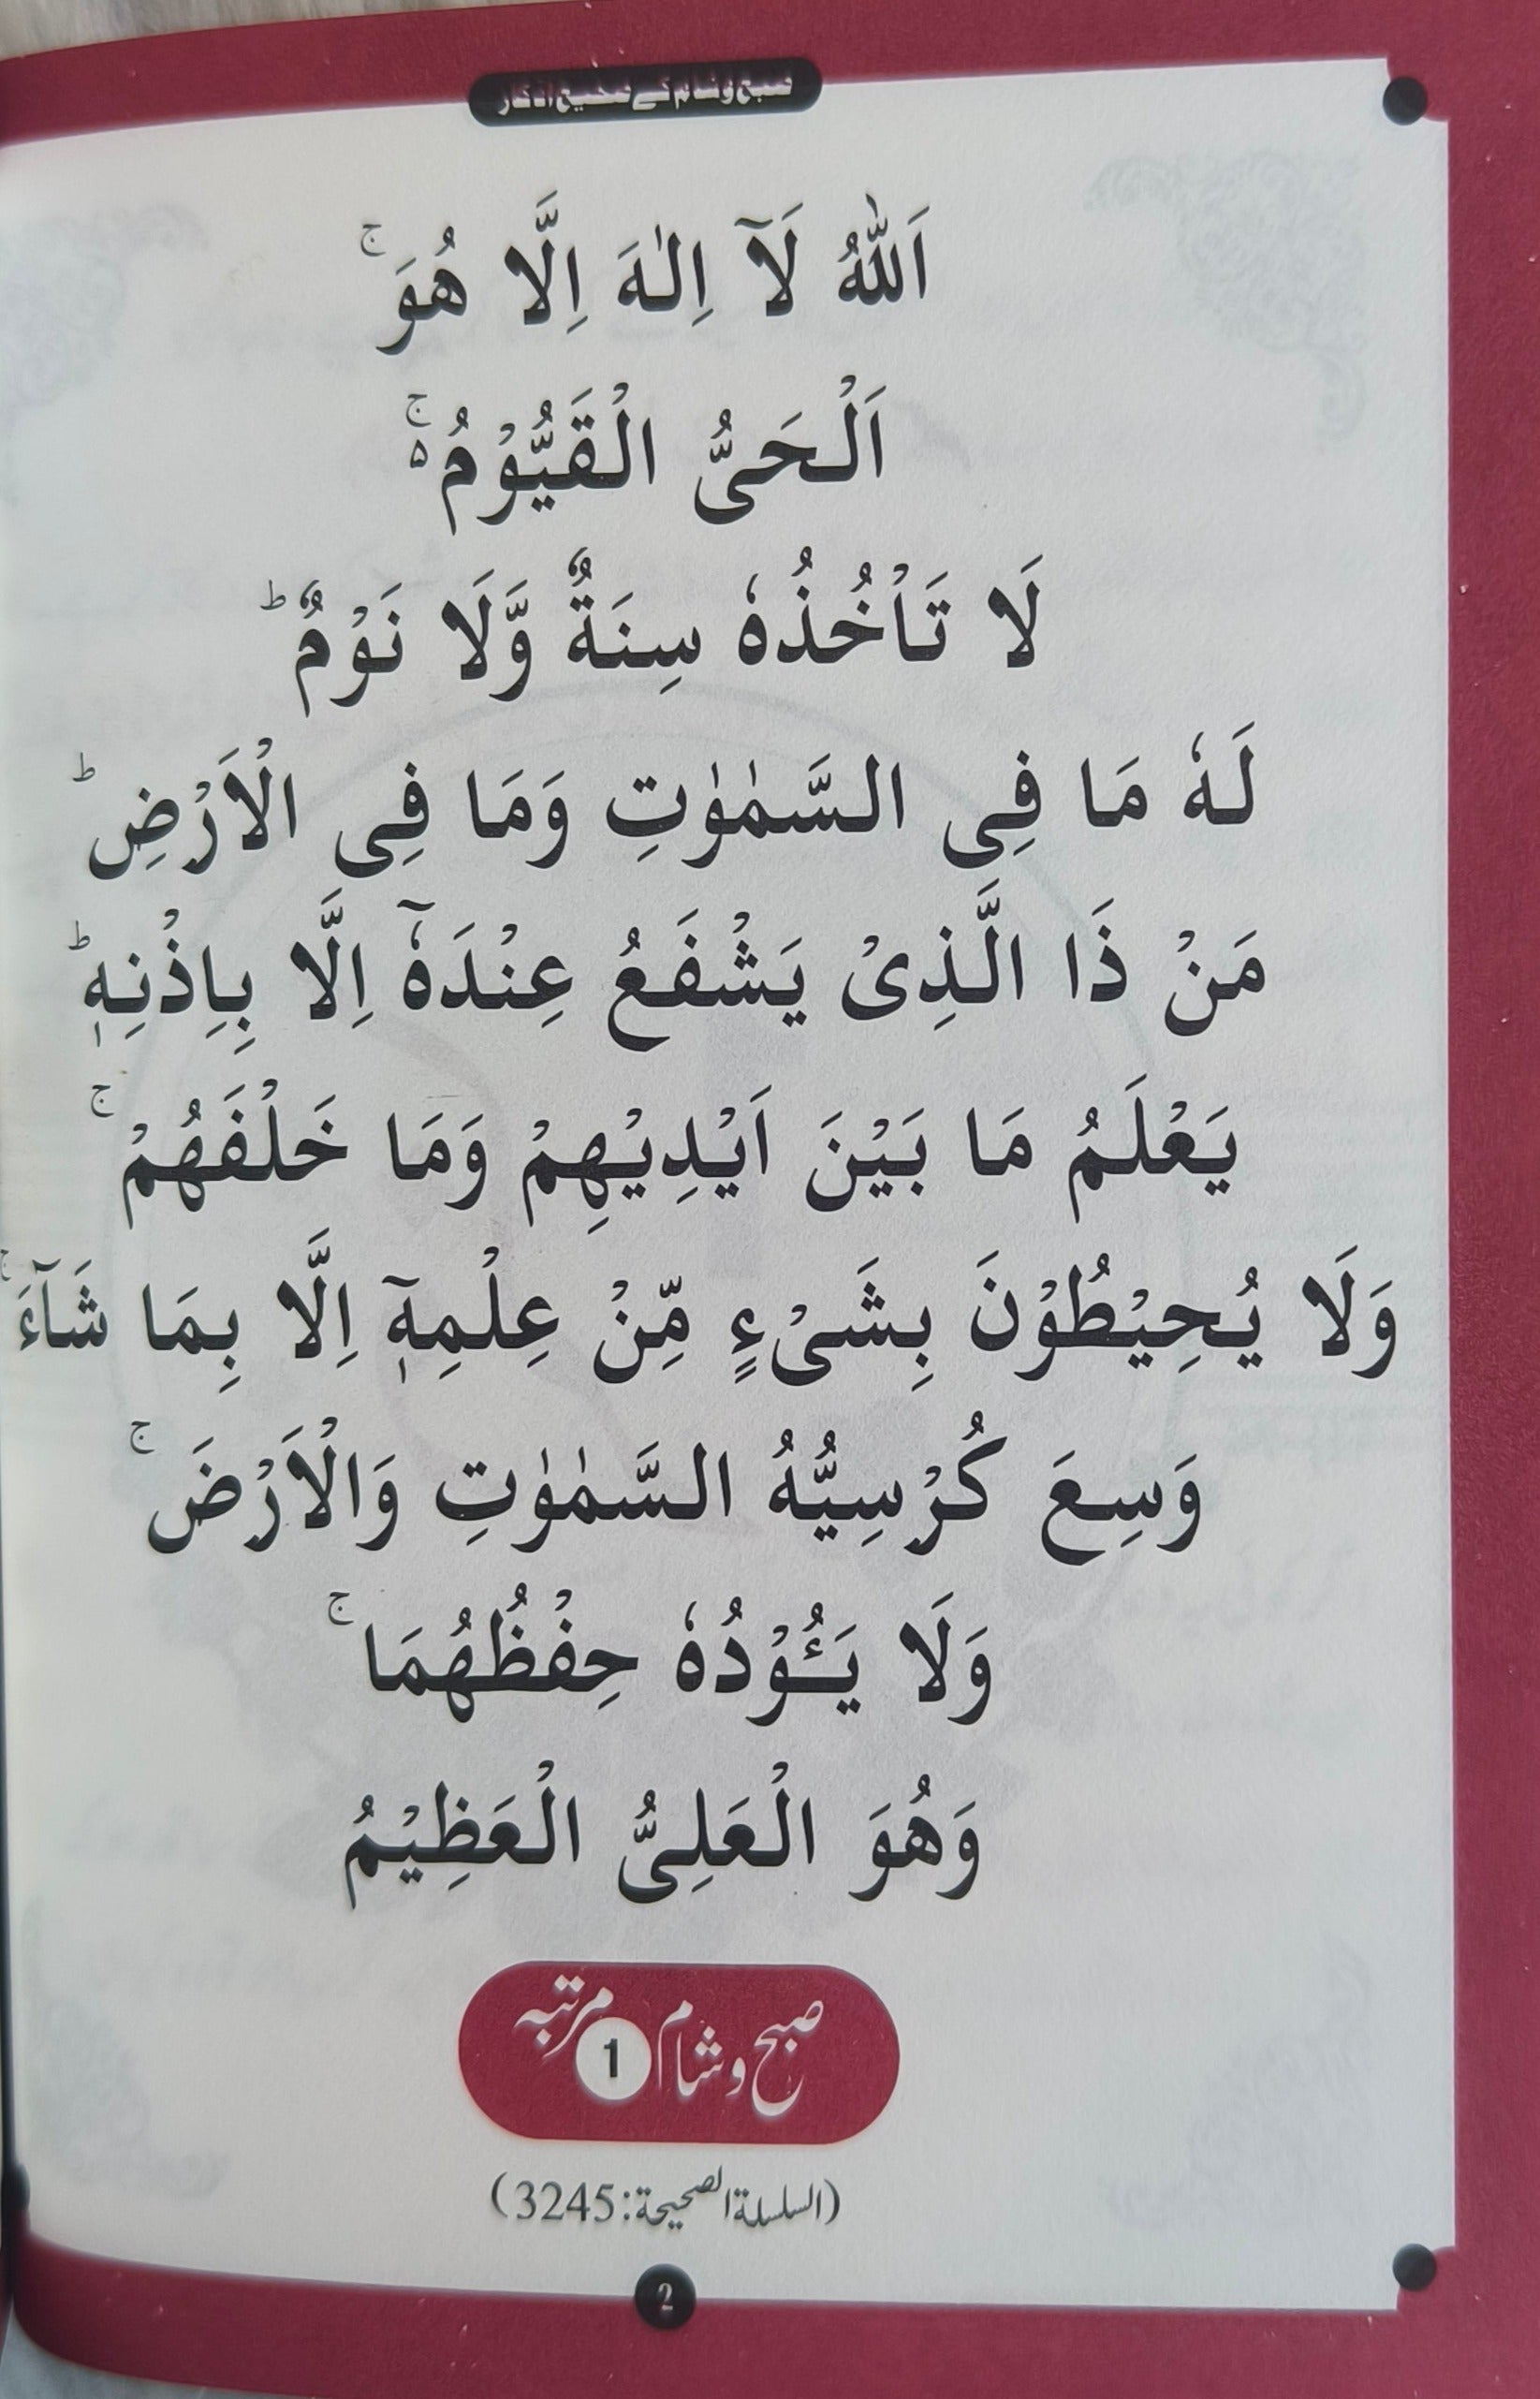 صبح وشام کے صحیح اذکار
اَللّٰهُ لَآ اِلٰهَ اِلَّا هُوَ ۚ
اَلْحَیُّ الْقَیُّوْمُ ۚ۬
لَا تَاْخُذُهٗ سِنَةٌ وَّلَا نَوْمٌ ؕ
لَهٗ مَا فِی السَّمٰوٰتِ وَمَا فِی الْاَرْضِ ؕ
مَنْ ذَا الَّذِیْ یَشْفَعُ عِنْدَهٗۤ اِلَّا بِاِذْنِهٖ ؕ
یَعْلَمُ مَا بَیْنَ اَیْدِیْهِمْ وَمَا خَلْفَهُمْ ۚ
وَلَا یُحِیْطُوْنَ بِشَیْءٍ مِّنْ عِلْمِهٖۤ اِلَّا بِمَا شَآءَ ۚ
وَسِعَ كُرْسِیُّهُ السَّمٰوٰتِ وَالْاَرْضَ ۚ
وَلَا یَـُٔوْدُهٗ حِفْظُهُمَا ۚ
وَهُوَ الْعَلِیُّ الْعَظِیْمُ
صبح وشام 1 مرتبہ
(السلسلة الصحيحة: 3245)
2